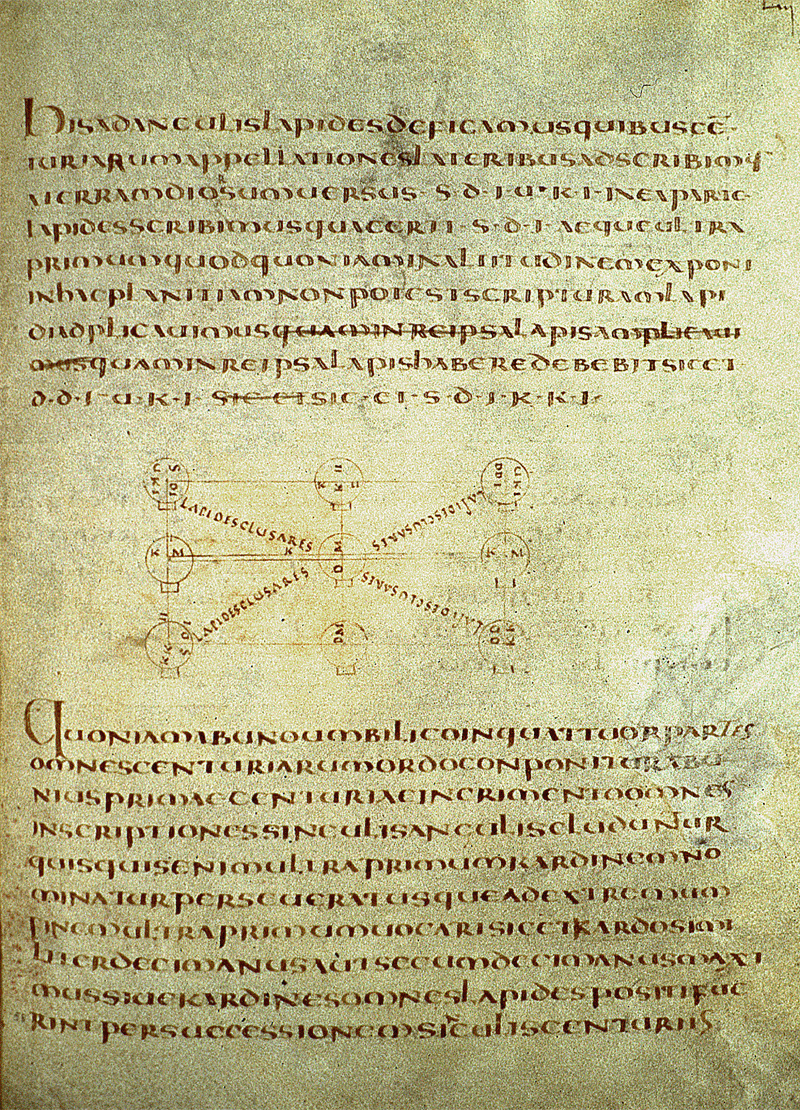 hisadanculislapidesdeficamusquibuscē
turiarumappellationeslateribusadscribimus
aterramdiosumuersus·s·d·i·u·k·i·ineaparte
lapidesscribimusquacerti·s·d·i·aequeultra
primumquodquoniaminaltitudinemexponi
inhacplanitiamnonpotestscripturamlapi
diadplicauimusquaminreipsalapisamplicaui
musquaminreipsalapishaberedebebitsicet
d·d·i·u·k·i· sicetsic·et·s·d·i·k·k·i·
LAPIDESCLUSARES
LAPIDESCLUSARES
K M
K
D M
K M
LAPIDESCLUSARES
LAPIDESCLUSARES
quoniamabunoumbilicoinquattuorpartes
omnescenturiarumordoconponitur
niusprimaecenturiaeincrimentoomnes
inscriptionessinculisanculiscluduntur
quisquisenimultraprimumkardinemno
minaturperseueratusqueadextremum
finemultraprimumuocarisicetkardosimi
literdecimanusautsecumdecimanusmaxi
mussiuekardinesomneslapidespositifue
rintpersuccessionemsinculiscenturiis